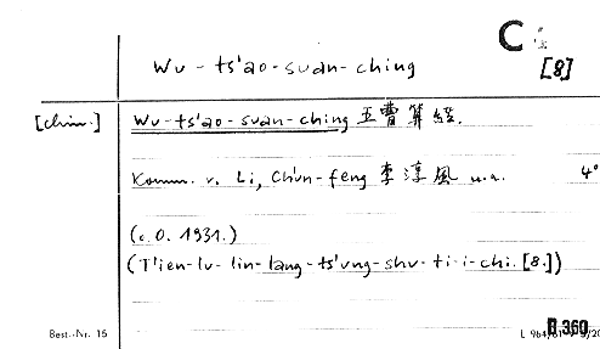 C
Wu-ts'ao-suan-ching [8]
[chin.] Wu-ts'ao-suan-ching 五曹算經.
Komm. v. Li, Ch'un-feng 李淳風 u.a. 4°
(c.O. 1931.)
(T'ien-lu-lin-lang-ts'ung-shu-ti-i-chi. [8.])
Best.-Nr. 15